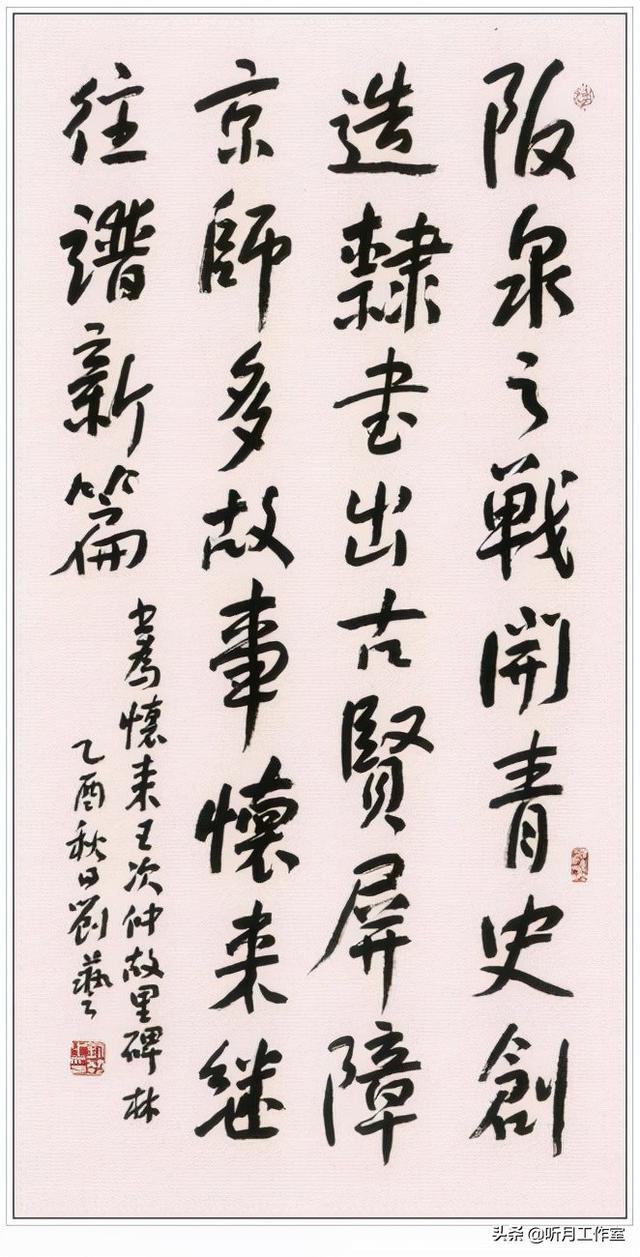 阪泉之戰開青史創
造隸书出古賢屏障
京師多故事懷来继
往譜新篇
书為懷来王次仲故里碑林
乙酉秋日劉藝
头条 @听月工作室